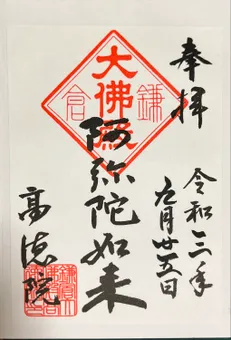 奉拝
令和二年
九月廿五日
鎌倉
大佛殿
阿弥陀如来
高徳院